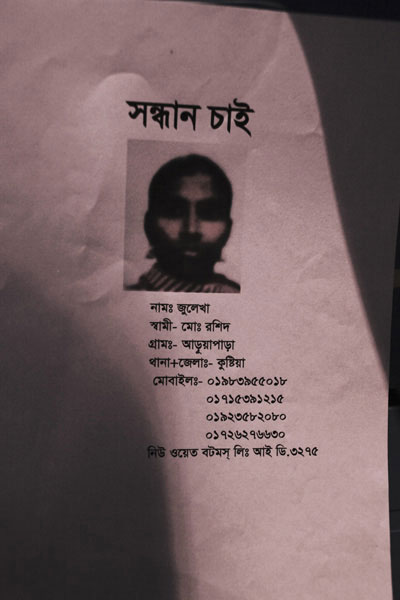 সন্ধান চাই
নামঃ জুলেখা
স্বামী- মোঃ রশিদ
গ্রামঃ- আড়ুয়াপাড়া
থানা+জেলাঃ- কুষ্টিয়া
মোবাইলঃ- ০১৯৮৩৯৫৫০১৮
০১৭১৫৩৯১২১৫
০১৯২৩৫৮২০৮০
০১৭২৬২৭৬৬৩০
নিউ ওয়েভ বটমস্ লিঃ আই ডি.৩২৭৫